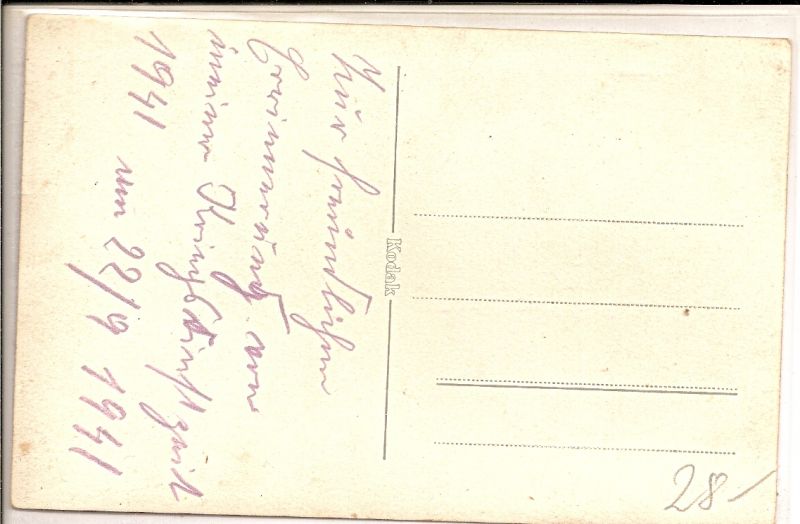 Zur freundlichen
Erinnerung von
meiner Kriegsdienstzeit
1941 am 22/9 1941
Kodak
28-